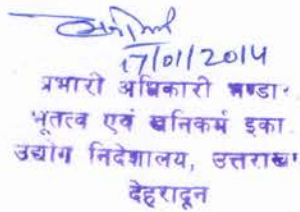 17/01/2014
प्रभारी अधिकारी भण्डा
भूतत्व एवं खनिकर्म इका
उद्योग निदेशालय, उत्तराख
देहरादून